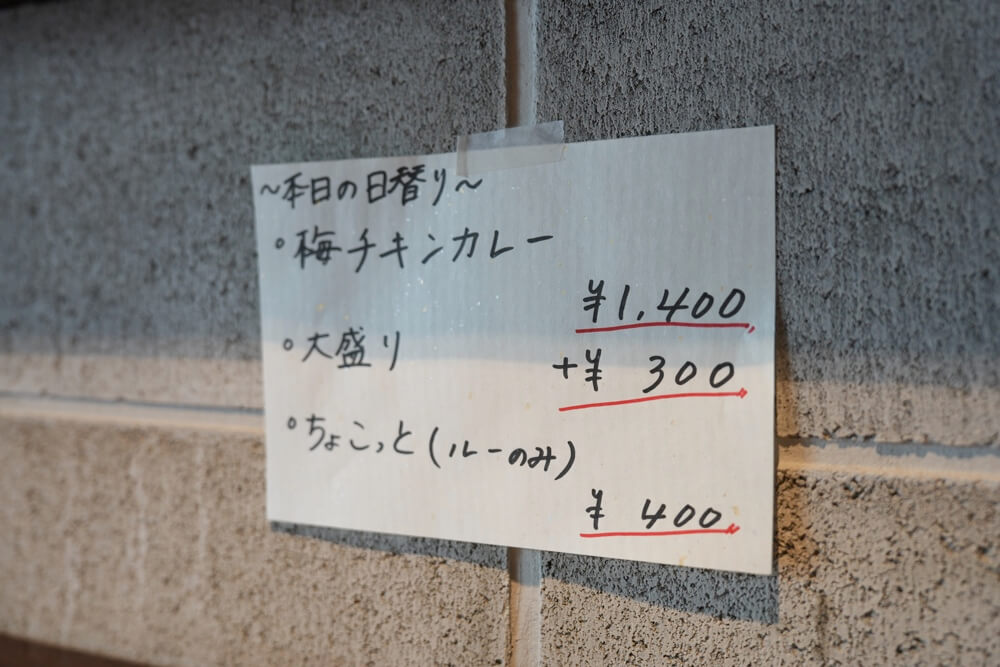 ～本日の日替り～
・梅チキンカレー
¥1,400
・大盛り
+¥ 300
・ちょこっと(ルーのみ)
¥ 400